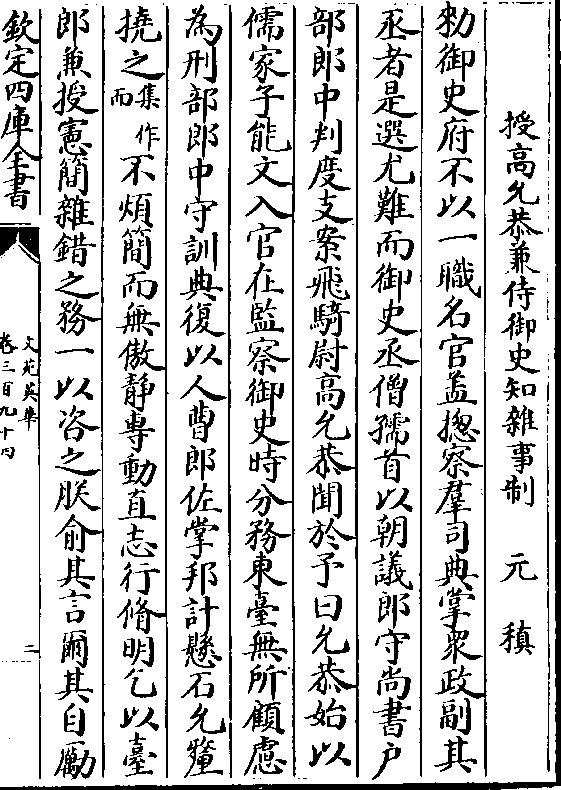 授高允恭兼侍御史知雜事制 元稹
勑御史府不以一職名官盖揔察羣司典掌衆政副其
丞者是選尤難而御史丞僧孺首以朝議郎守尚書户
部郎中判度支案飛騎尉高允恭聞於予曰允恭始以
儒家子能文入官在監察御史時分務東臺無所顧慮
為刑部郎中守訓典復以人曹郎佐掌邦計懸石允釐
撓之集作而不煩簡而無傲静専動直志行脩明乞以臺
郎兼授憲簡雜錯之務一以咨之朕俞其言爾其自勵
欽定四庫全書
文苑英華
卷三百九十四
二